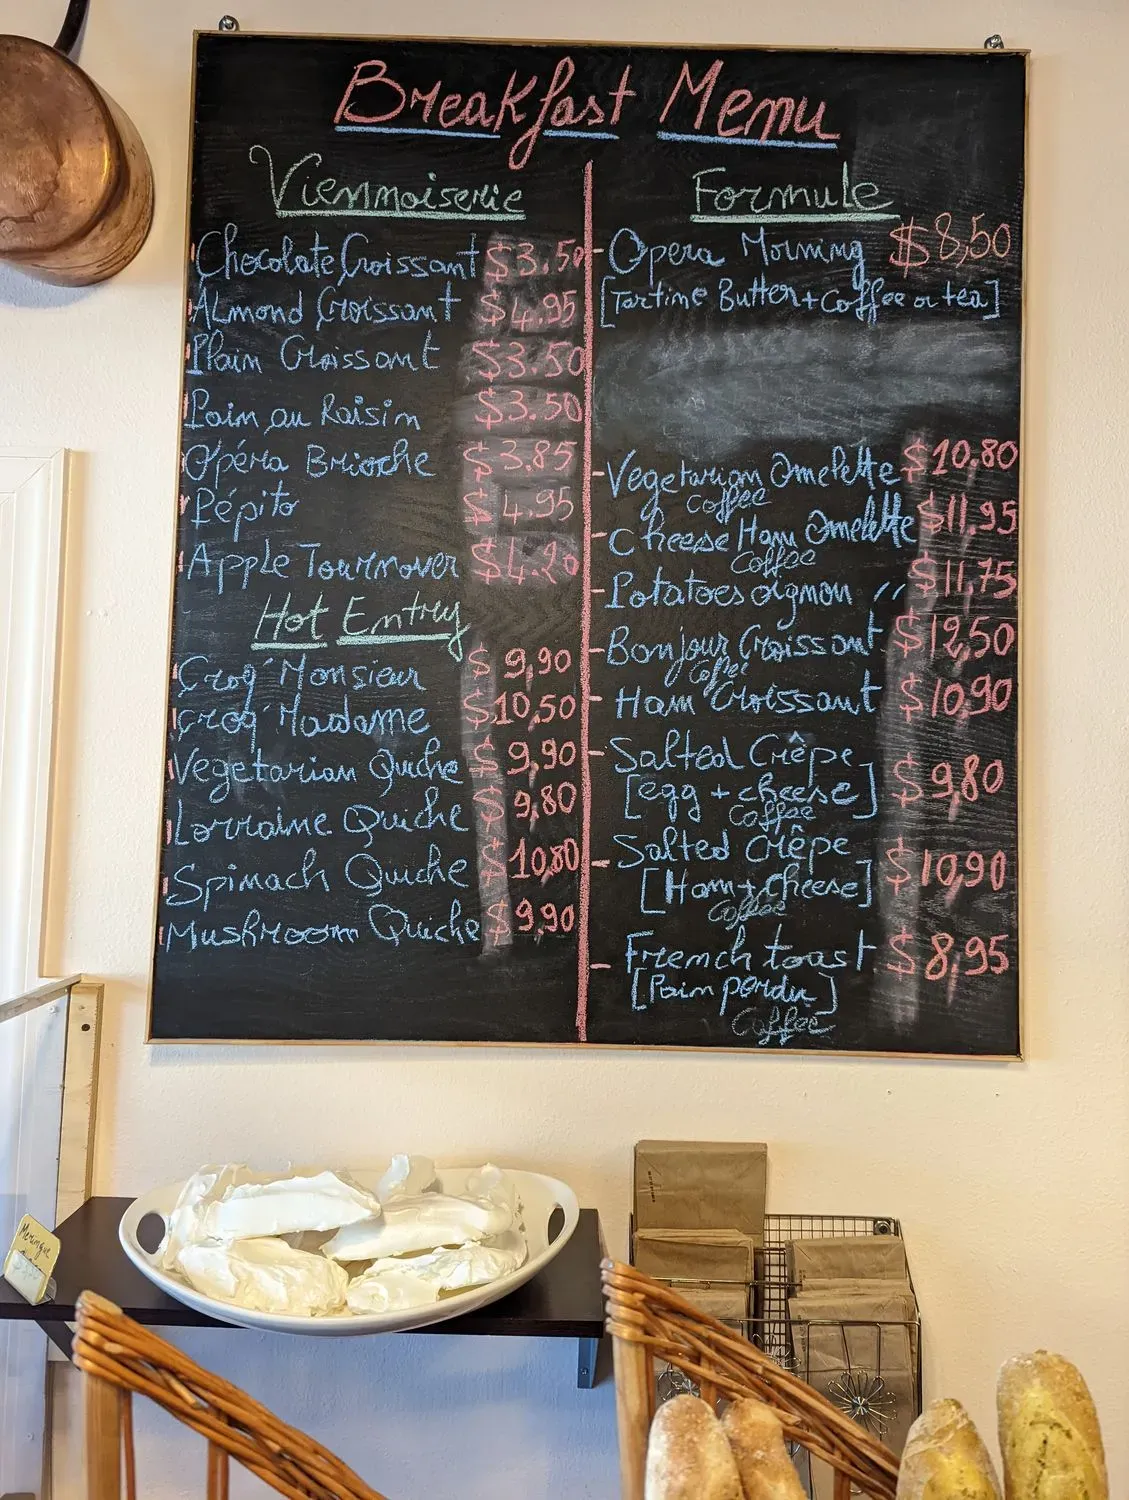 Breakfast Menu
Viennoiserie
Chocolate Croissant $3.50
Almond Croissant $4.95
Plain Croissant $3.50
Pain au Raisin $3.50
Opéra Brioche $3.85
Pépito $4.95
Apple Tournover $4.20
Hot Entrey
Croq' Monsieur $9,90
Croq' Madame $10,50
Vegetarian Quiche $9,90
Lorraine Quiche $9,80
Spinach Quiche $10,80
Mushroom Quiche $9,90
Formule
- Opera Morning $8,50
[Tartine Butter + Coffee or tea]
- Vegetarian Omelette $10,80
Coffee
- Cheese Ham Omelette $11,95
Coffee
- Potatoes oignon // $11,75
- Bonjour Croissant $12,50
Coffee
- Ham Croissant $10,90
- Salted Crêpe
[egg + cheese] $9,80
Coffee
- Salted Crêpe
[Ham + cheese] $10,90
Coffee
- French toast $8,95
[Pain perdu]
Coffee
Meringue